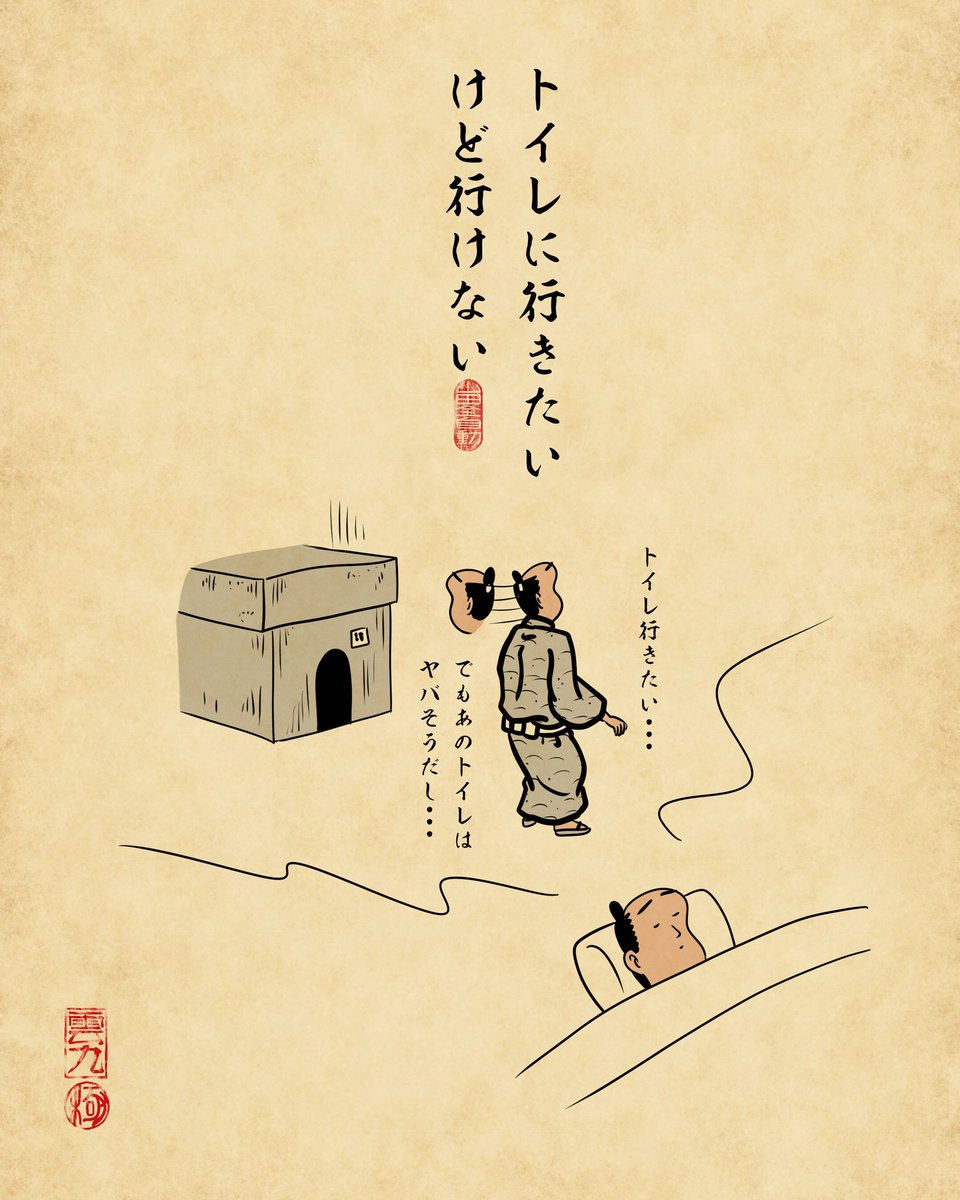 トイレに行きたい
けど行けない
トイレ行きたい・・・
でもあのトイレは
ヤバそうだし・・・